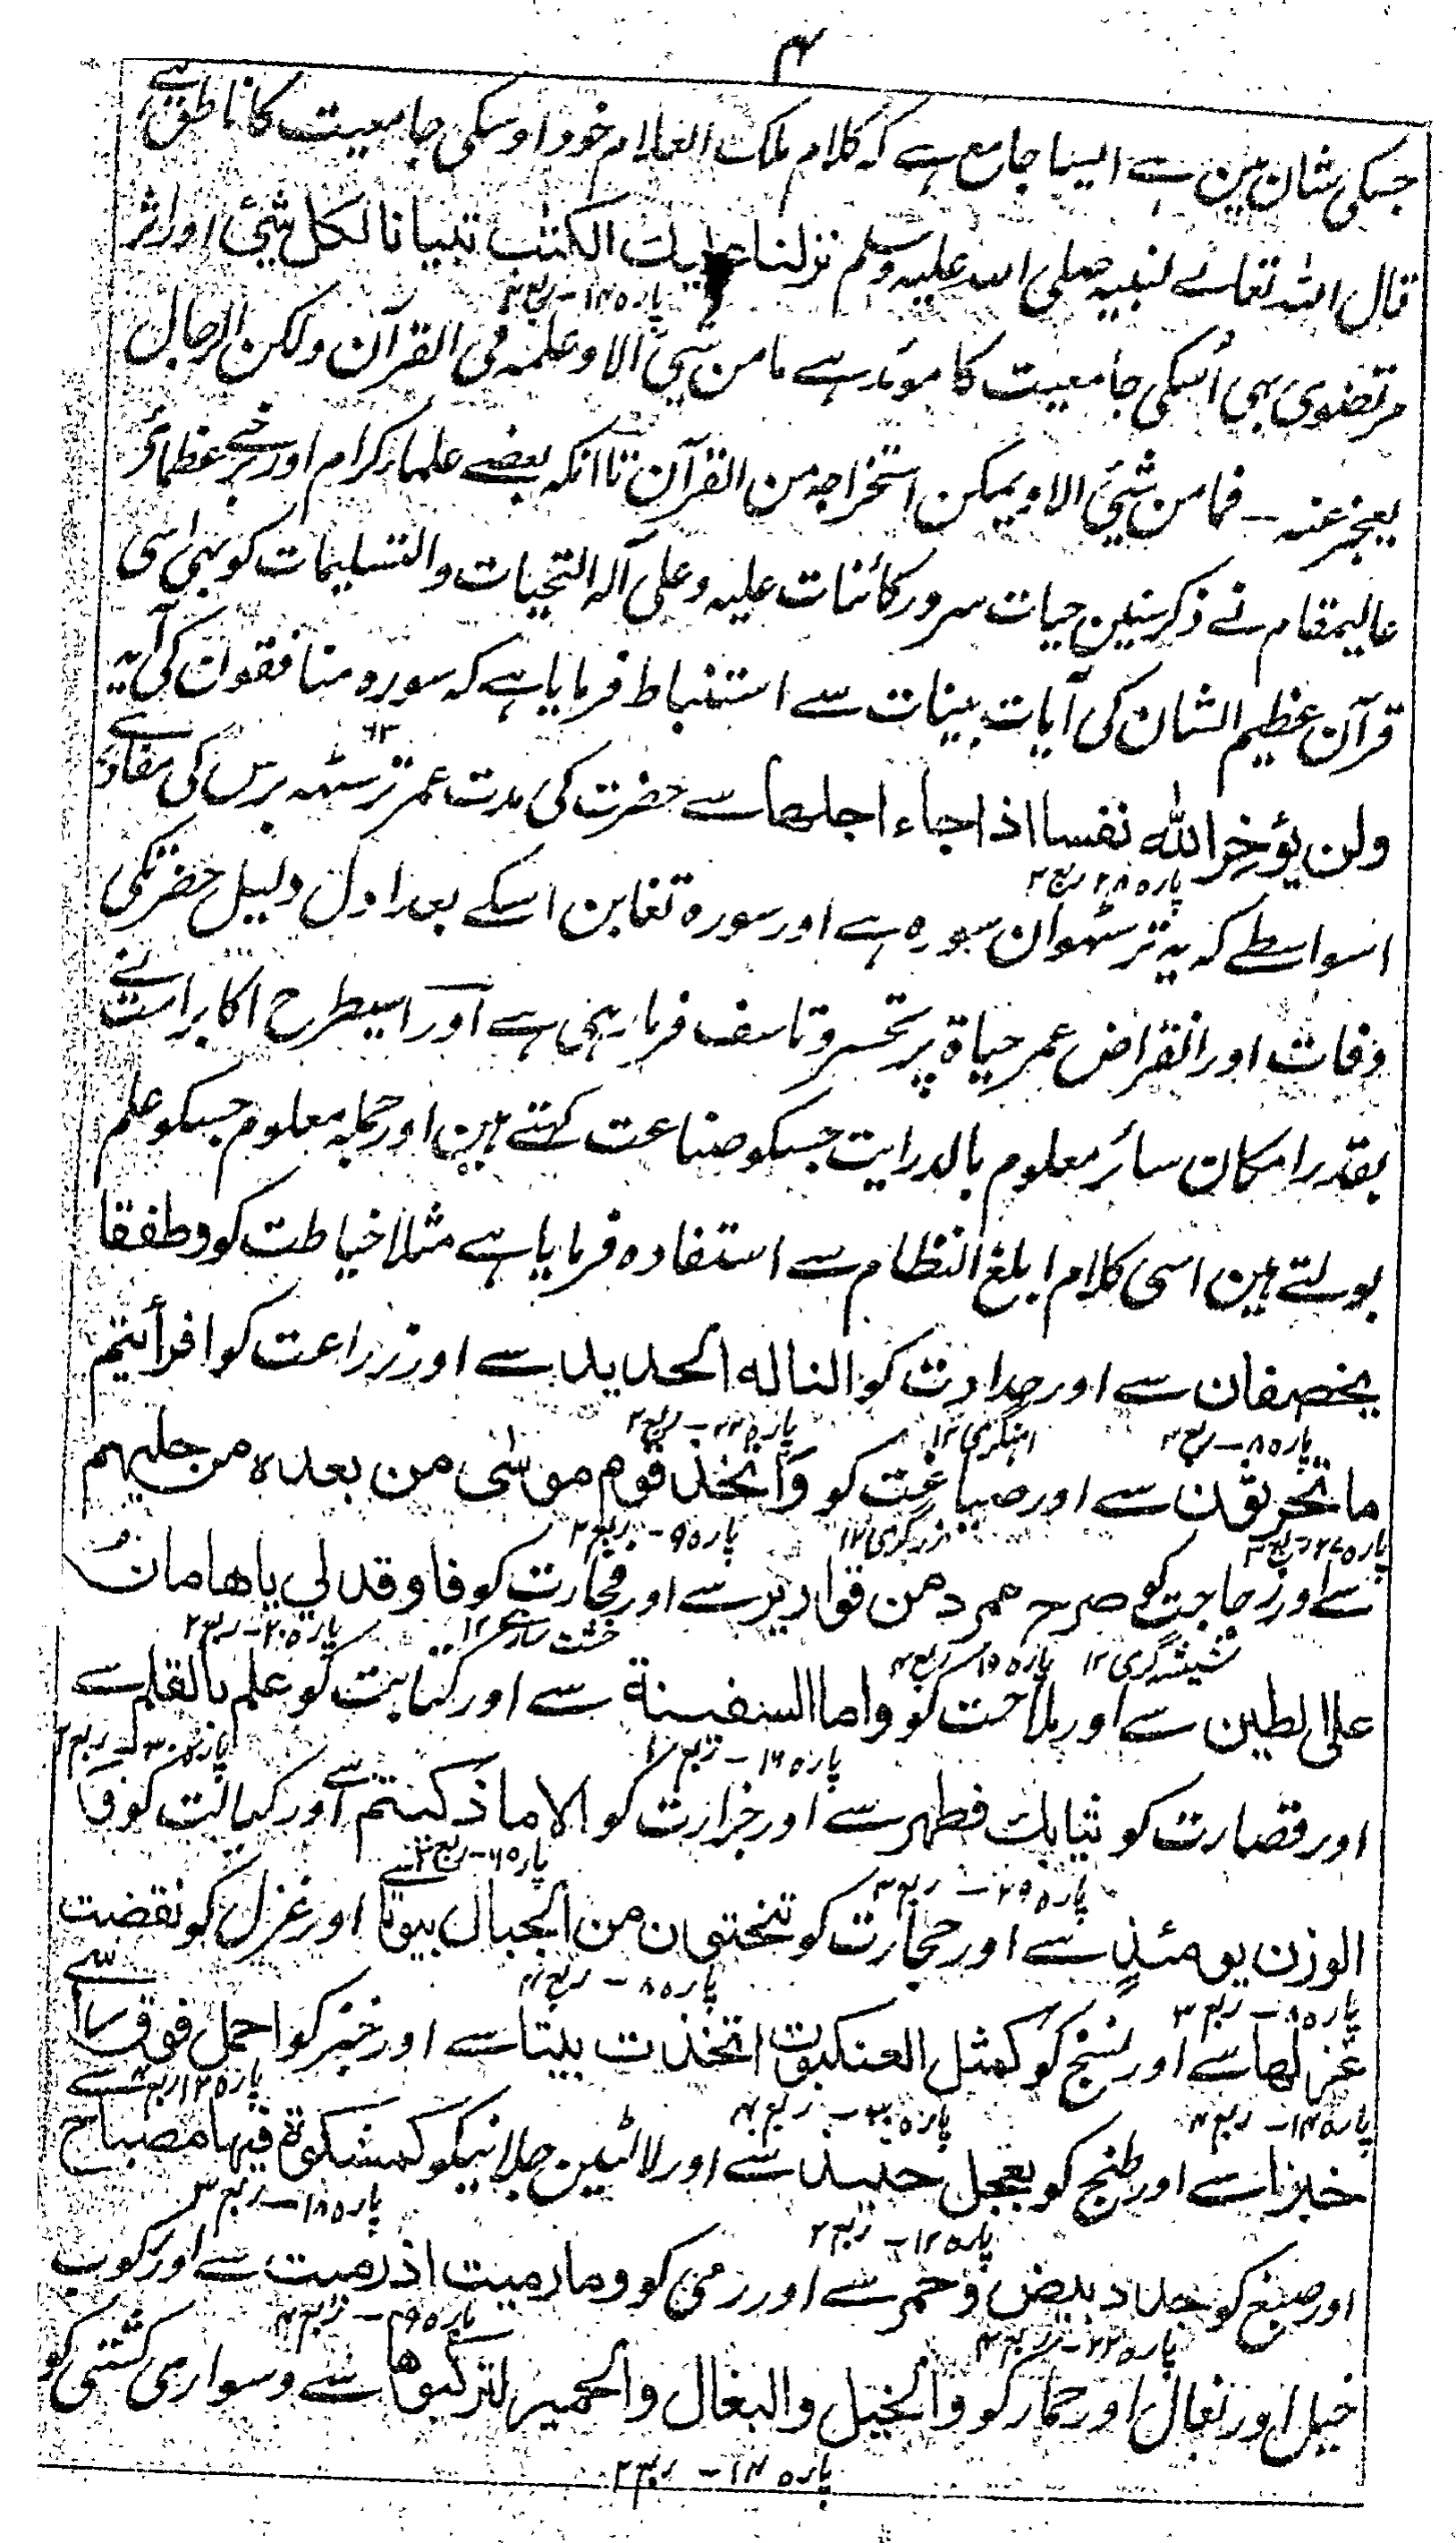 ۴
جسکی شان مین ہے ایسا جامع ہے کہ کلام ملک العلام خود اوسکی جامعیت کا ناطق ہے
قال اللہ تعالے لنبیہ صلی اللہ علیہ وسلم نزلنا علیک الکتٰب تبیانا لکل شیٔ اور اثر
پارہ ۱۴ - ربع ۳
مرتضوی بہی اُسکی جامعیت کا موید ہے ما من شیٔ الا و علمہ فی القرآن ولکن الرجال
یعجز عنہ - فما من شیٔ الا و یمکن استخراجہ من القرآن تا آنکہ بعضے علماء کرام اور برخے عظمائے
عالیمقام نے ذکر سنین حیات سرور کائنات علیہ و علی آلہ التحیات والتسلیمات کو بہی اسی
قرآن عظیم الشان کی آیات بینات سے استنباط فرمایا ہے کہ سورہ منافقون کی آیہ
ولن یؤخر اللہ نفسا اذا جاء اجلھا سے حضرت کی مدت عمر ترسٹھ برس کی مفاد ہے
۶۳
پارہ ۲۸ ربع ۳
اسواسطے کہ یہ ترسٹھوان سورہ ہے اور سورہ تغابن اسکے بعد اول دلیل حضرتکی
وفات اور انقراض عمر حیاۃ پر تحسر و تاسف فرما رہی ہے اور اسیطرح اکابر امت نے
بقدر امکان سائر معلوم بالدرایت جسکو صناعت کہتے ہین اور جملہ معلوم جسکو علم
بولتے ہین اسی کلام ابلغ النظام سے استفادہ فرمایا ہے مثلا خیاطت کو وطفقا
یخصفان سے اور حدادت کو النا لہ الحدید سے اور زراعت کو افرأیتم
پارہ ۸ - ربع ۳
اہنگری ۱۲
پارہ ۲۲ - ربع ۲
ما تحرثون سے اور صیاغت کو واتخذ قوم موسٰی من بعدہ من حلیھم
پارہ ۲۷ - ربع ۳
زرگری ۱۲
پارہ ۹ - ربع ۲
سے اور زجاجت کو صرح ممرد من قواریر سے اور فجارت کو فاوقد لی یا ھامان
شیشہ گری ۱۲
پارہ ۱۹ - ربع ۴
خشت سازی ۱۲
پارہ ۲۰ - ربع ۲
علی الطین سے اور ملاحت کو واما السفینة سے اور کتابت کو علم بالقلم سے
پارہ ۱۶ - ربع ۱
پارہ ۳۰ - ربع
اور قصارت کو ثیابک فطھر سے اور جزارت کو الا ما ذکیتم سے اور کیالت کو و
پارہ ۲۹ - ربع ۳
پارہ ۶ - ربع ۲
الوزن یومئذ سے اور حجارت کو تنحتون من الجبال بیوتا سے اور غزل کو نقضت
پارہ ۸ - ربع ۳
پارہ ۸ - ربع ۴
غزلھا سے اور نسج کو کمثل العنکبوت اتخذت بیتا سے اور خبز کو احمل فوق راسی
پارہ ۱۴ - ربع ۴
پارہ ۲۰ - ربع ۴
پارہ ۱۲ ربع
خبزا سے اور طبخ کو بعجل حنیذ سے اور لالٹین جلانیکو کمشکوٰة فیھا مصباح سے
پارہ ۱۲ - ربع ۲
پارہ ۱۸ - ربع ۳
اور صبغ کو جدد بیض و حمر سے اور رمی کو وما رمیت اذ رمیت سے اور رکوب
پارہ ۲۲ - ربع ۴
پارہ ۹ - ربع ۴
خیل اور بغال اور حمار کو والخیل والبغال والحمیر لترکبوھا سے و سواری کشتی کو
پارہ ۱۴ - ربع ۲